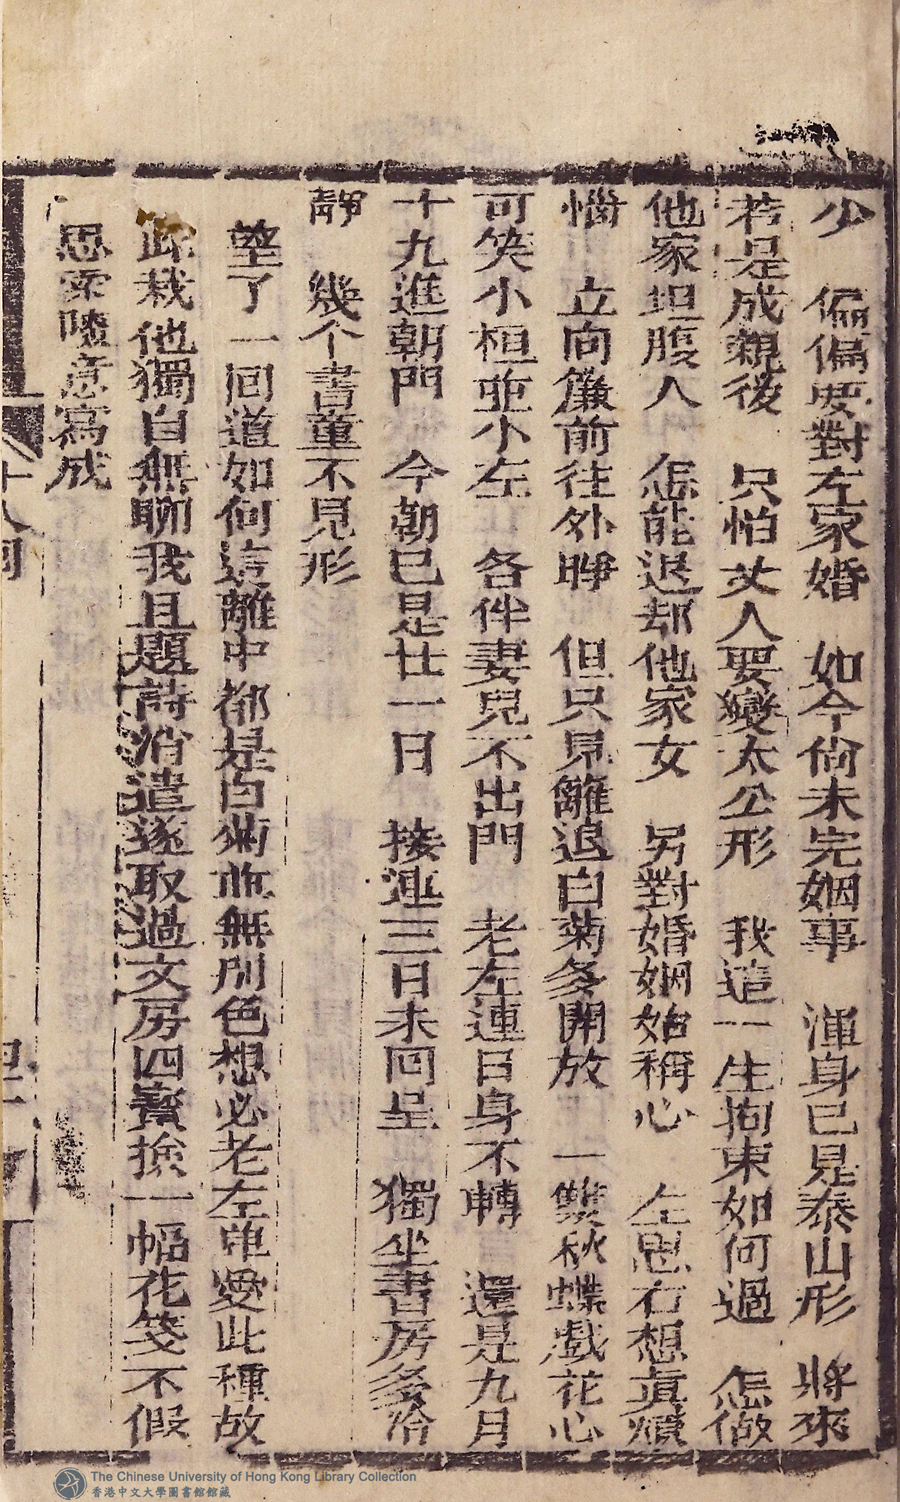 少　偏偏要對左家婚　如今尙未完姻事　渾身已是泰山形　將來
若是成親後　只怕丈人要變太公形　我這一生拘束如何過　怎做
他家坦腹人　怎能退却他家女　另對婚姻始稱心　左思右想眞煩
惱　立向簾前往外睜　但只見籬邊白菊多開放　一雙秋蝶戲花心
可笑小桓並小左　各伴妻兒不出門　老左連日身不轉　還是九月
十九進朝門　今朝已是廿一日　接連三日未回呈　獨坐書房多冷
靜　幾个書童不見形
望了一回道如何這籬中都是白菊並無別色想必老左單愛此種故
此栽他獨自無聊我且題詩消遣遂取過文房四寳撿一幅花箋不假
思索隨意寫成
十八回
The Chinese University of Hong Kong Library Collection
香港中文大學圖書館館藏